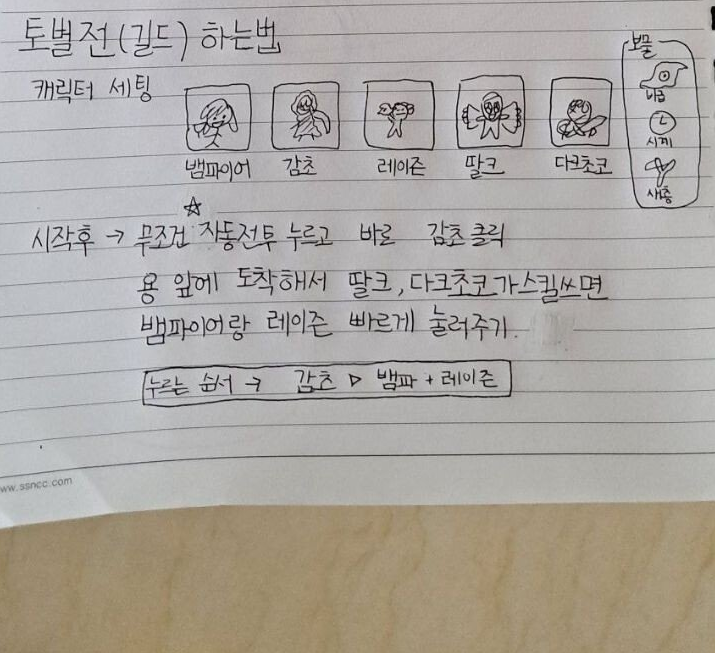 토벌전(길드) 하는법
캐릭터 세팅
뱀파이어 감초 레이즌 딸크 다크초코
보물
시계
새총
☆
시작후 → 무조건 자동전투 누르고 바로 감초클릭
용 앞에 도착해서 딸크, 다크초코가스킬쓰면
뱀파이어랑 레이즌 빠르게 눌러주기.
누르는 순서 → 감초 ▷ 뱀파 + 레이즌
ww.ssncc.com